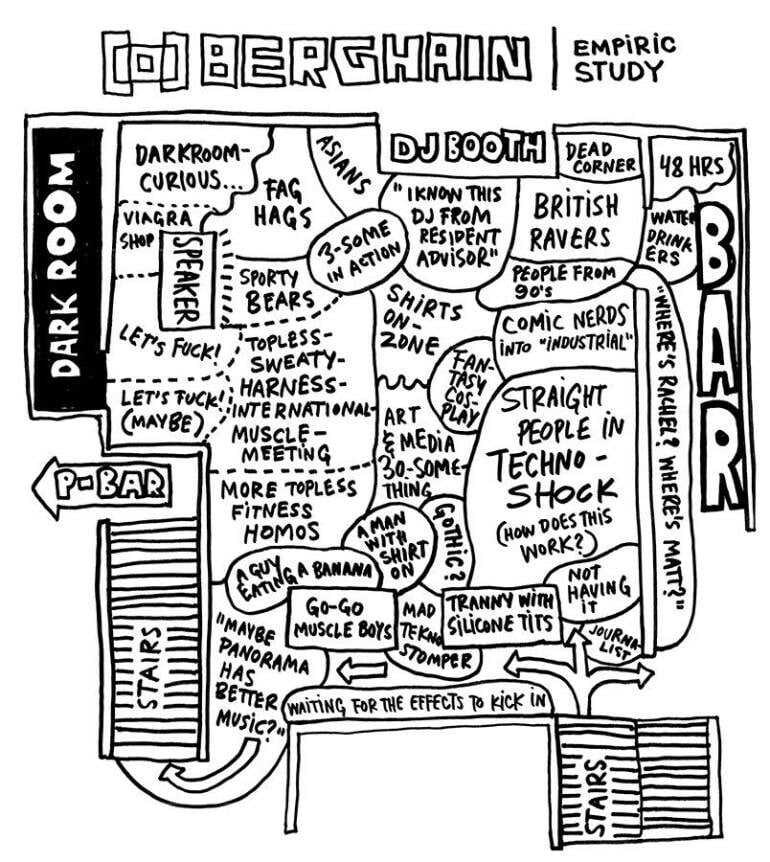 BERGHAIN
EMPIRIC
STUDY
DARK ROOM
DARKROOM-
CURIOUS...
VIAGRA
SHOP
SPEAKER
FAG
HAGS
ASIANS
DJ BOOTH
DEAD
CORNER
48 HRS
BAR
WATER
DRINK
ERS
"I KNOW THIS
DJ FROM
RESIDENT
ADVISOR"
BRITISH
RAVERS
PEOPLE FROM
90's
3-SOME
IN ACTION
SPORTY
BEARS
SHIRTS
ON-
ZONE
COMIC NERDS
INTO "INDUSTRIAL"
"WHERE'S RACHEL? WHERE'S MATT?"
LET'S FUCK!
LET'S FUCK!
(MAYBE)
TOPLESS-
SWEATY-
HARNESS-
INTERNATIONAL-
MUSCLE-
MEETING
FAN-
TASY
COS-
PLAY
ART
& MEDIA
30-SOME-
THING
STRAIGHT
PEOPLE IN
TECHNO-
SHOCK
(HOW DOES THIS
WORK?)
P-BAR
MORE TOPLESS
FITNESS
HOMOS
A MAN
WITH
SHIRT
ON
GOTHIC?
A GUY
EATING A BANANA
NOT
HAVING
IT
GO-GO
MUSCLE BOYS
MAD
TEKNO
STOMPER
TRANNY WITH
SILICONE TITS
JOURNA-
LIST
"MAYBE
PANORAMA
HAS
BETTER
MUSIC?"
WAITING FOR THE EFFECTS TO KICK IN
STAIRS
STAIRS